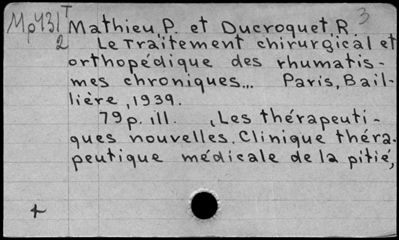 Mp431 T Mathieu, P. et Ducroquet, R. 3
2 Le Traitement chirurgical et
orthopédique des rhumatis-
mes chroniques... Paris, Bail-
lière, 1939.
79 p. ill. , Les thérapeuti-
ques nouvelles. Clinique théra-
peutique médicale de la pitié,